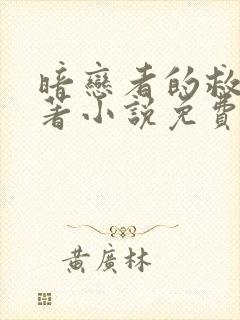 暗戀者的救
著小說免費
黃廣林